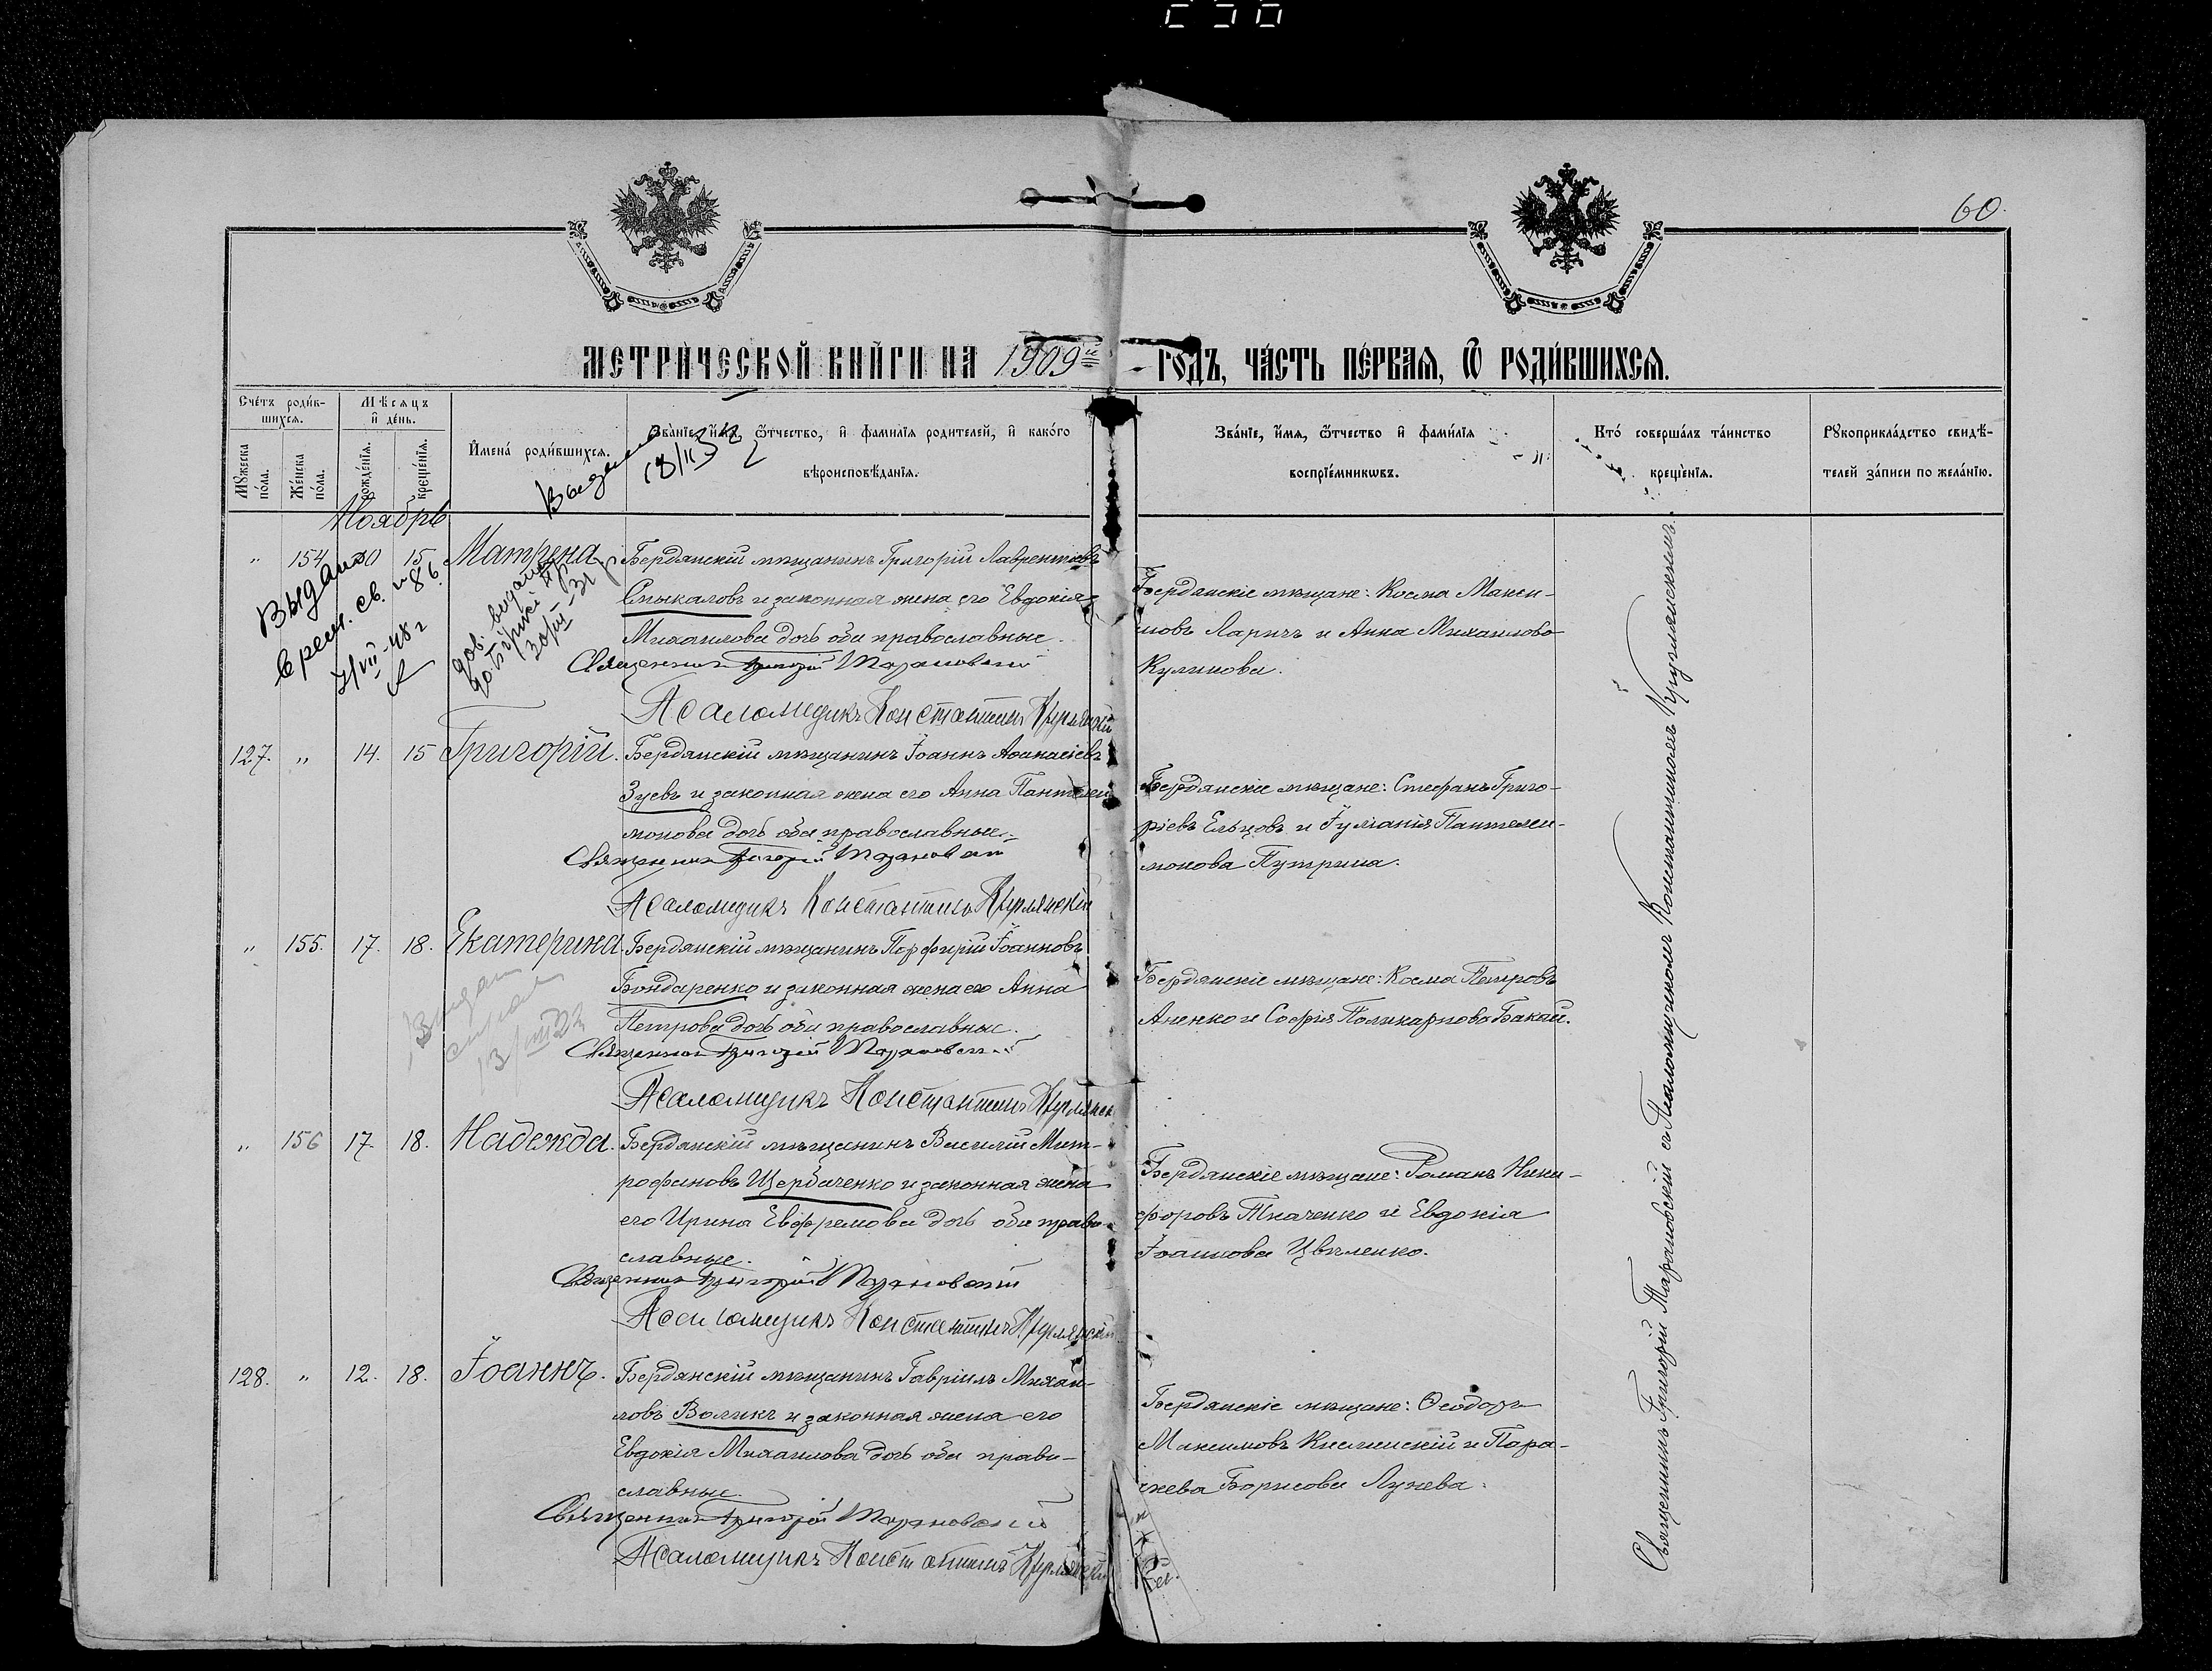 60.
МЕТРИЧЕСКОЙ КНИГИ НА 1909й ГОДЪ, ЧАСТЬ ПЕРВАЯ, Ѿ РОДИВШИХСЯ.
Счетъ родив-
шихся.
Мѣсяцъ
и день.
Мужеска пола.
Женска пола.
рожденія.
крещенія.
Имена родившихся.
Званіе, имя, ѿтчество, и фамилія родителей, и какого
вѣроисповѣданія.
Званіе, имя, ѿтчество и фамилія
воспріемниковъ.
Кто совершалъ таинство
крещенія.
Рукоприкладство свидѣ-
телей записи по желанію.
Ноябрь
" 154 15 Матрена Бердянскій мѣщанинъ Григорій Лаврентьевъ
Смыкаловъ и законная жена его Евдокія
Михаилова дочь оба православные.
Священникъ Григорій Тарановскій
Псаломщикъ Константинъ
Бердянскіе мѣщане: Косма Макси-
мовъ Ларичъ и Анна Михаилова
Куликова.
Выдано
врем. св. № 86.
7/VII-48 г
127. " 14. 15 Григорій. Бердянскій мѣщанинъ Іоаннъ Аѳанасіевъ
Зуевъ и законная жена его Анна Пантелеи-
монова дочь оба православные.
Священникъ Григорій Тарановскій
Псаломщикъ Константинъ
Бердянскіе мѣщане: Стефанъ Григо-
ріевъ Ельцовъ и Іуліанія Пантелеи-
монова Путрина.
" 155. 17. 18. Екатерина. Бердянскій мѣщанинъ Порфирій Іоанновъ
Бондаренко и законная жена его Анна
Петрова дочь оба православные.
Священникъ Григорій Тарановскій
Псаломщикъ Константинъ
Бердянскіе мѣщане: Косма Петровъ
Аненко и Софія Поликарпова Бакай.
" 156 17. 18. Надежда. Бердянскій мѣщанинъ Василій Мит-
рофановъ Щербаченко и законная жена
его Ирина Евфремова дочь оба право-
славные.
Священникъ Григорій Тарановскій
Псаломщикъ Константинъ
Бердянскіе мѣщане: Романъ Ники-
форовъ Ткаченко и Евдокія
Іоаннова Цвиленко.
128. " 12. 18. Іоаннъ. Бердянскій мѣщанинъ Гавріилъ Михаи-
ловъ Воликъ и законная жена его
Евдокія Михаилова дочь оба право-
славные.
Священникъ Григорій Тарановскій
Псаломщикъ Константинъ
Бердянскіе мѣщане: Ѳеодоръ
Максимовъ Кислинскій и Пара-
скева Борисова Лунева.
Священникъ Григорій Тарановскій съ Псаломщикомъ Константиномъ